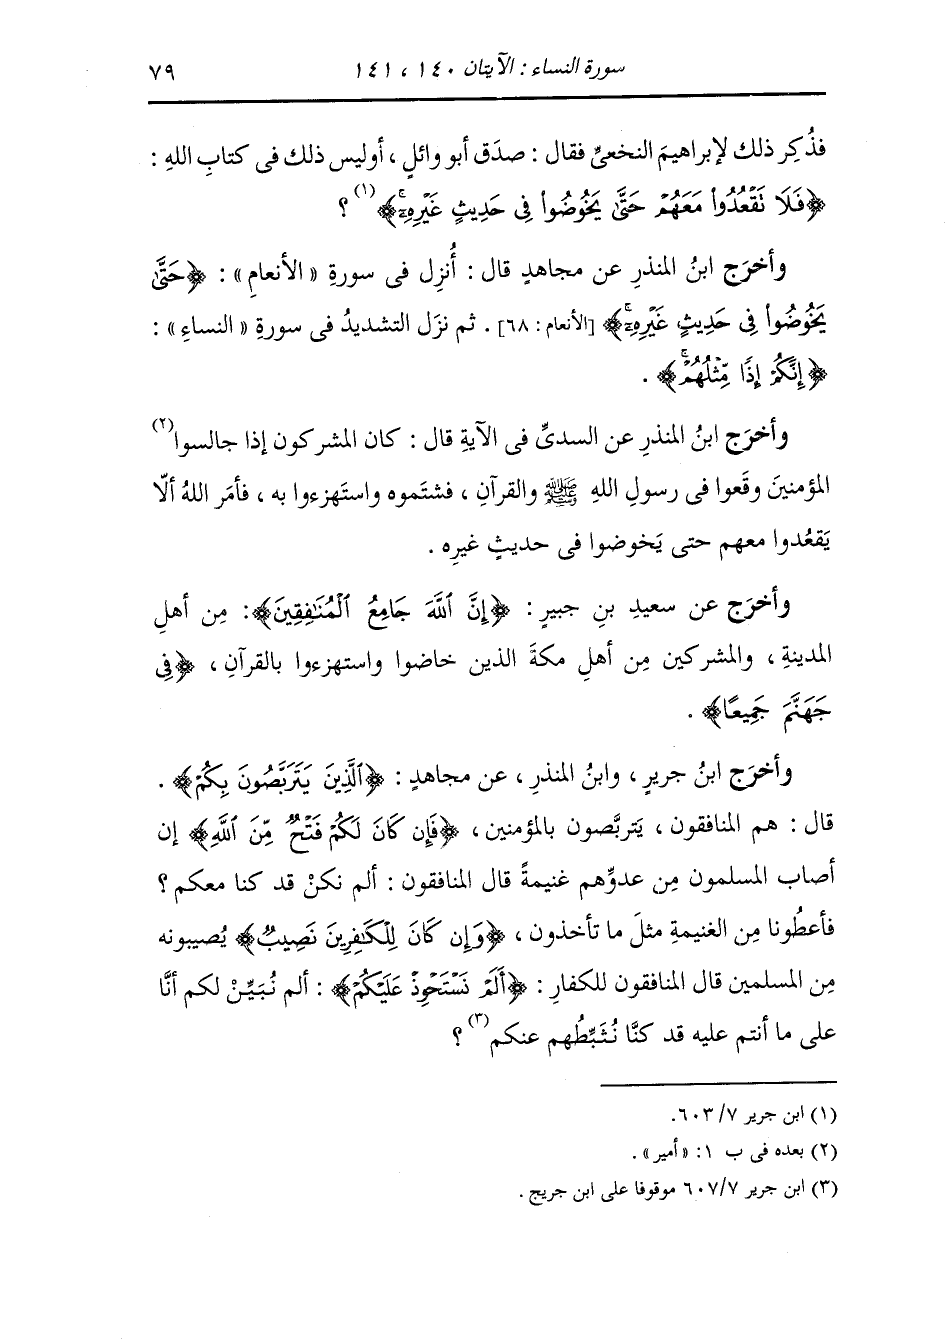 سورة النساء : الآيتان ١٤٠ ، ١٤١ ٧٩
فذُكِر ذلك لإبراهيمَ النخعىِّ فقال : صدَق أبو وائلٍ ، أوليس ذلك فى كتابِ اللهِ :
﴿فَلَا تَقْعُدُوا۟ مَعَهُمْ حَتَّىٰ يَخُوضُوا۟ فِى حَدِيثٍ غَيْرِهِۦٓۚ﴾(١) ؟
وأخرَج ابنُ المنذرِ عن مجاهدٍ قال : أُنزِل فى سورةِ « الأنعامِ » : ﴿حَتَّىٰ
يَخُوضُوا۟ فِى حَدِيثٍ غَيْرِهِۦۚ﴾ [الأنعام : ٦٨] . ثم نزَل التشديدُ فى سورةِ « النساءِ » :
﴿إِنَّكُمْ إِذًا مِّثْلُهُمْۗ﴾ .
وأخرَج ابنُ المنذرِ عن السدىِّ فى الآيةِ قال : كان المشركون إذا جالسوا(٢)
المؤمنينَ وقَعوا فى رسولِ اللهِ ﷺ والقرآنِ ، فشتَموه واستَهزءوا به ، فأمَر اللهُ ألّا
يَقعُدوا معهم حتى يَخوضوا فى حديثٍ غيرِه .
وأخرَج عن سعيدِ بنِ جبيرٍ : ﴿إِنَّ ٱللَّهَ جَامِعُ ٱلْمُنَٰفِقِينَ﴾ : مِن أهلِ
المدينةِ ، والمشركين مِن أهلِ مكةَ الذين خاضوا واستهزءوا بالقرآنِ ، ﴿فِى
جَهَنَّمَ جَمِيعًا﴾ .
وأخرَج ابنُ جريرٍ ، وابنُ المنذرِ ، عن مجاهدٍ : ﴿ٱلَّذِينَ يَتَرَبَّصُونَ بِكُمْ﴾ .
قال : هم المنافقون ، يَتربَّصون بالمؤمنين ، ﴿فَإِن كَانَ لَكُمْ فَتْحٌ مِّنَ ٱللَّهِ﴾ إن
أصاب المسلمون مِن عدوِّهم غنيمةً قال المنافقون : ألم نكنْ قد كنا معكم ؟
فأعطُونا مِن الغنيمةِ مثلَ ما تأخذون ، ﴿وَإِن كَانَ لِلْكَٰفِرِينَ نَصِيبٌ﴾ يُصيبونه
مِن المسلمين قال المنافقون للكفارِ : ﴿أَلَمْ نَسْتَحْوِذْ عَلَيْكُمْ﴾ : ألم نُبَيِّنْ لكم أنَّا
على ما أنتم عليه قد كنَّا نُثَبِّطُهم عنكم(٣) ؟
(١) ابن جرير ٧/ ٦٠٣.
(٢) بعده فى ب ١: « أمير » .
(٣) ابن جرير ٦٠٧/٧ موقوفا على ابن جريج .